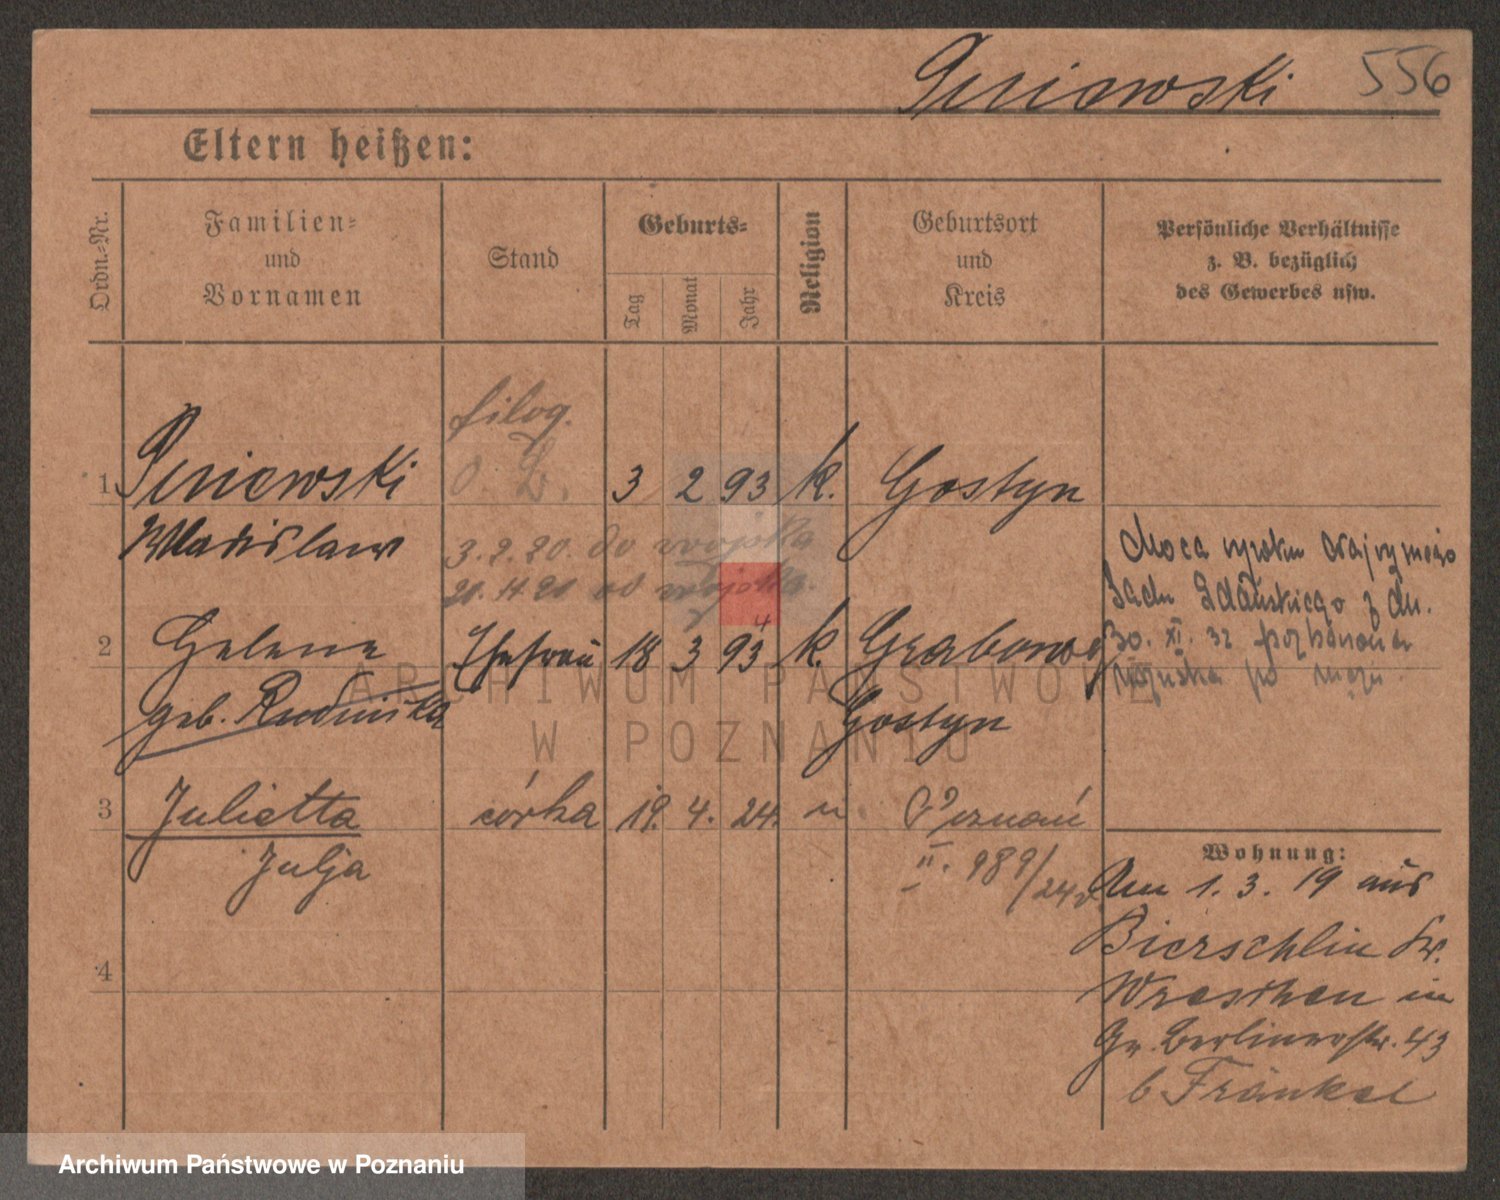 Pniewski 556
Eltern heißen:
Ordn.-Nr.
Familien-
und
Vornamen
Stand
Geburts-
Tag
Monat
Jahr
Religion
Geburtsort
und
Kreis
Persönliche Verhältnisse
z. B. bezüglich
des Gewerbes usw.
filog.
1 Pniewski 3 2 93 k. Gostyn
Wladislaw
3.2.20. do wojska
wojska.
2 Helene Ehefrau 18 3 93 4 k. Grabonog
geb. Rudnicka Gostyn
3 Julietta córka 19. 4. 24. Poznań
Julja II. 989/24
4
Mocą wyroku
Sądu Gdańskiego z dn.
30. XI. 32
po mężu.
Wohnung:
Am 1. 3. 19 aus
Bierschlin Kr.
Wreschen in
Gr. Berlinerstr. 43
b Fränkel
ARCHIWUM PAŃSTWOWE
W POZNANIU
Archiwum Państwowe w Poznaniu